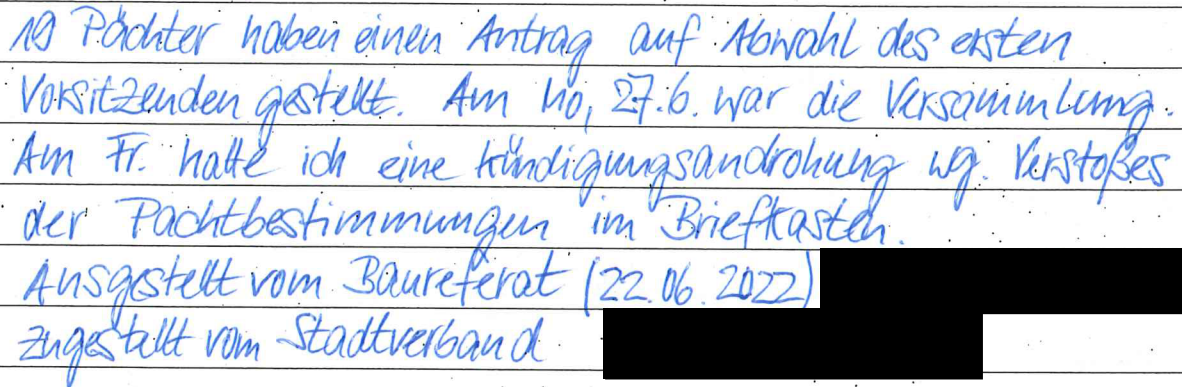 19 Pächter haben einen Antrag auf Abwahl des ersten
Vorsitzenden gestellt. Am Mo, 27.6. war die Versammlung.
Am Fr. hatte ich eine Kündigungsandrohung wg. Verstoßes
der Pachtbestimmungen im Briefkasten.
Ausgestellt vom Baureferat (22.06.2022)
zugestellt vom Stadtverband